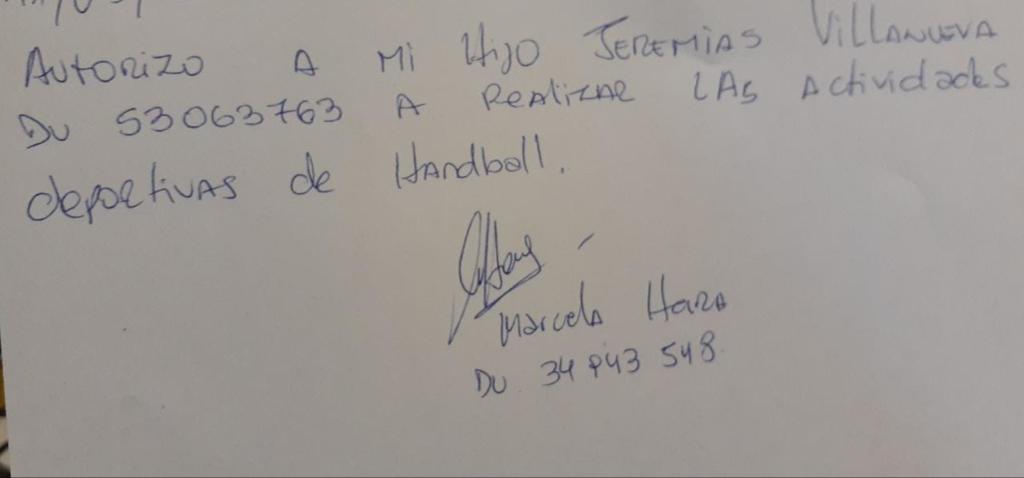 Autorizo A Mi Hijo Jeremias Villanueva
DU 53063763 A Realizar LAS Actividades
deportivas de Handball.
Marcela Haro
DU 34 943 548